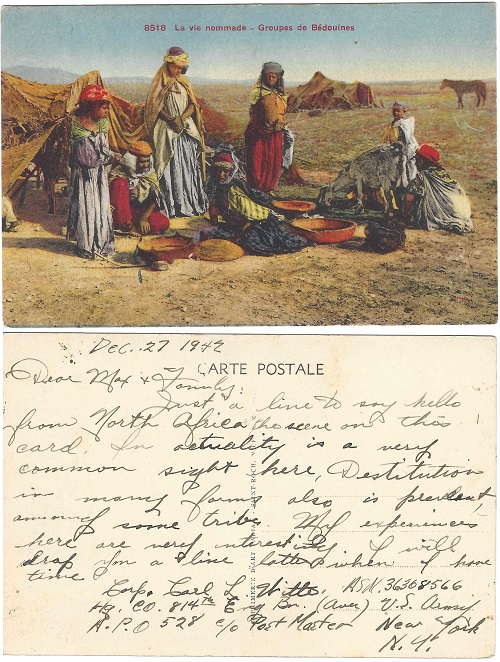 8518 La vie nommade - Groupes de Bédouines
Dec. 27 1942
CARTE POSTALE
Dear Max & Family:
Just a line to say hello
from North Africa the scene on this
card. In actuality is a very
common sight here, Destitution
in many forms also is prevalent
among some tribes. My experiences
here are very interesting I will
drop you a line later when I have
time.
Corp. Carl L. ASN. 36308566
Hq. CO. 814th Eng Bn. (Avn) U.S. Army
A.P.O 528 c/o Post Master New York
N.Y.